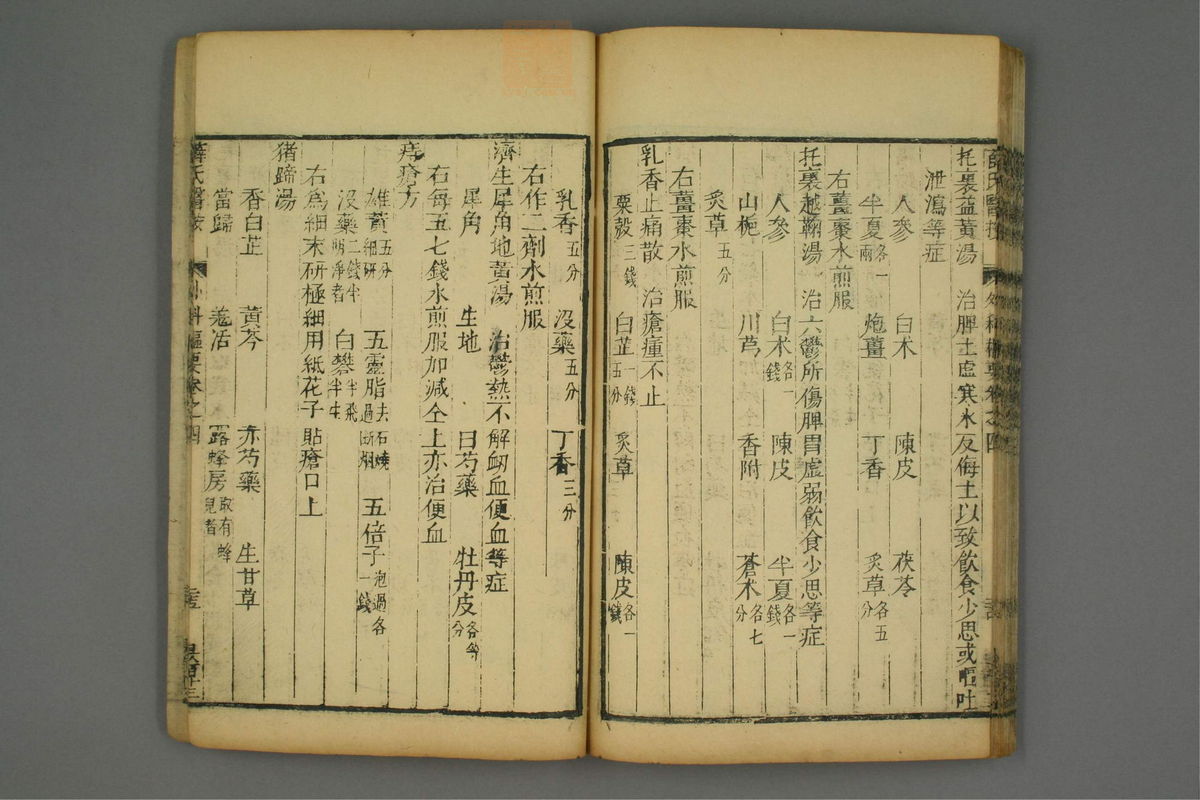 托裏益黃湯　治脾土虛寒水反侮土以致飲食少思或嘔吐
泄瀉等症
人參　白术　陳皮　茯苓
半夏各一兩　炮薑　丁香　炙草各五分
右薑棗水煎服
托裏越鞠湯　治六鬱所傷脾胃虛弱飲食少思等症
人參　白术各一錢　陳皮　半夏各一錢
山梔　川芎　香附　蒼朮各七分
炙草五分
右薑棗水煎服
乳香止痛散　治瘡瘇不止
粟殼三錢　白芷一錢五分　炙草　陳皮各一錢
乳香五分　沒藥五分　丁香三分
右作二劑水煎服
濟生犀角地黃湯　治鬱熱不解衂血便血等症
犀角　生地　白芍藥　牡丹皮各等分
右每五七錢水煎服加減仝上亦治便血
痔瘡方
雄黃五分細研　五靈脂去石燒過斷烟　五倍子泡過各一錢
沒藥二錢半明淨者　白礬半飛半生
右爲細末研極細用紙花子貼瘡口上
猪蹄湯
香白芷　黃芩　赤芍藥　生甘草
當歸　羌活　露蜂房取有蜂兒者
薛氏醫按　外科樞要卷之四